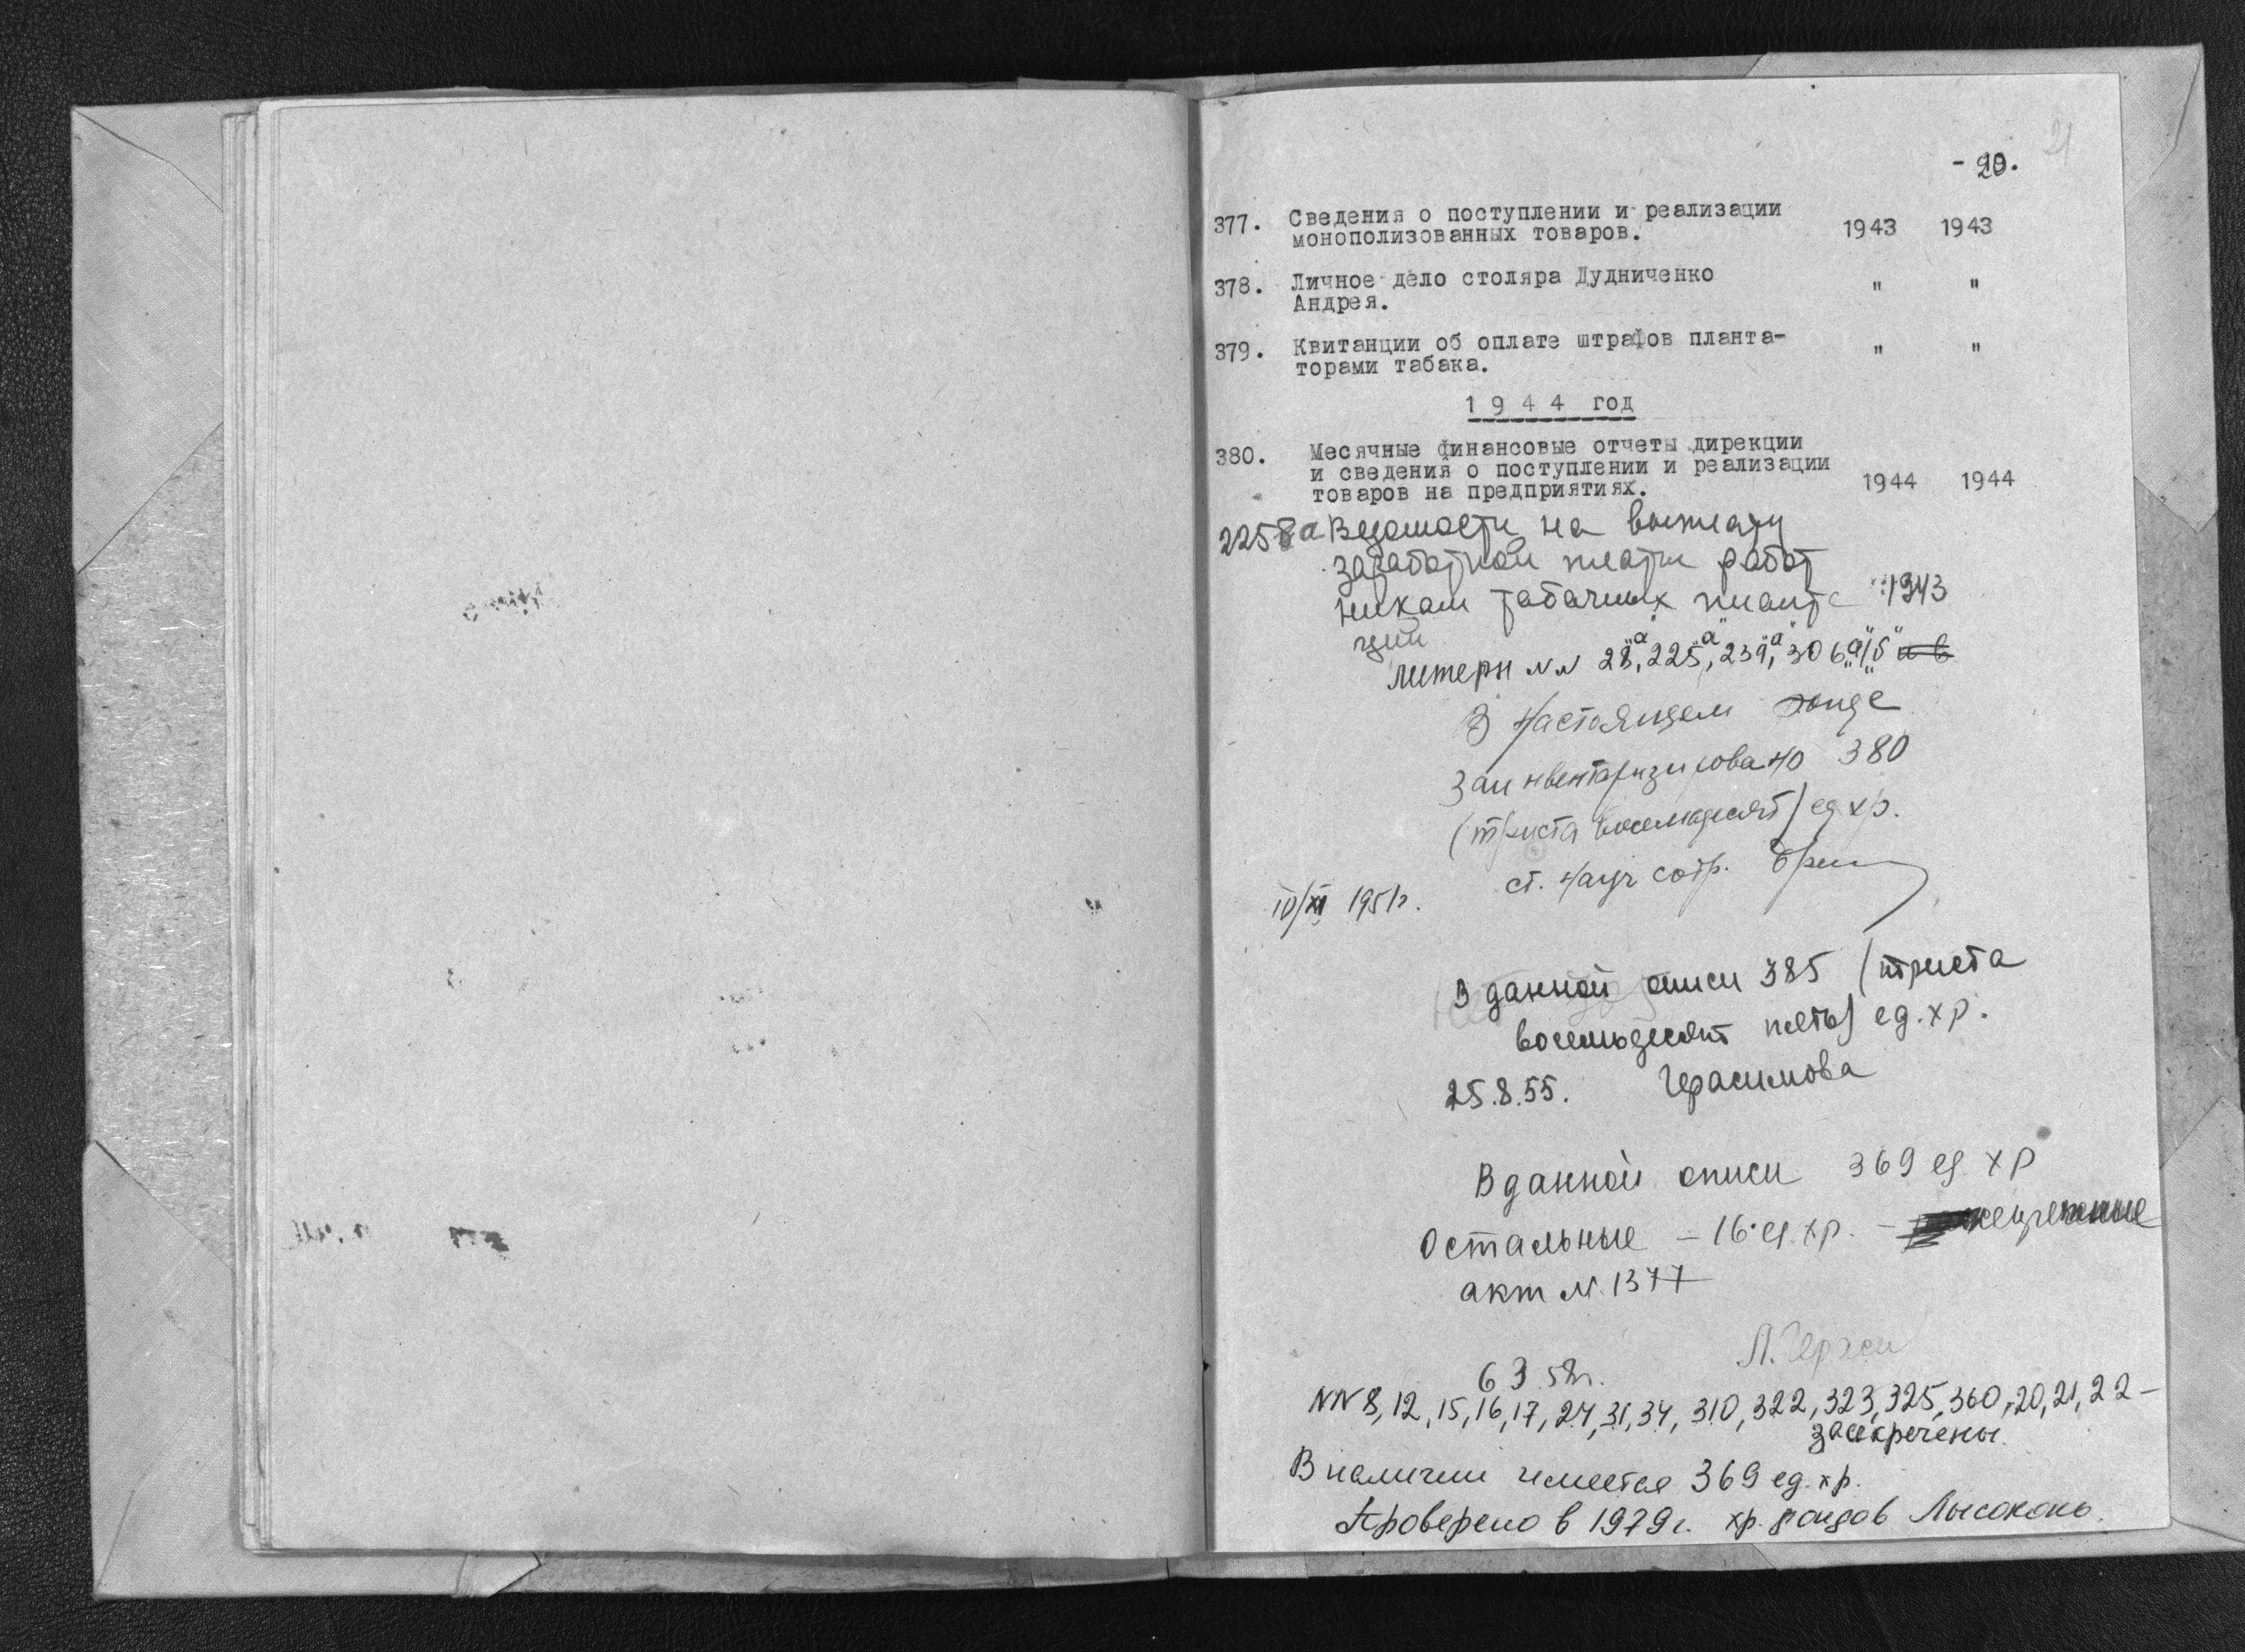 - 20.
21
377. Сведения о поступлении и реализации
монополизованных товаров. 1943 1943
378. Личное дело столяра Дудниченко
Андрея. " "
379. Квитанции об оплате штрафов планта-
торами табака. " "
1 9 4 4 год
380. Месячные финансовые отчеты дирекции
и сведения о поступлении и реализации
товаров на предприятиях. 1944 1944
Ведомости на выплату
заработной платы работ
никам табачных планта 1943
ций
литеры NN 28 "а", 225 "а", 239 "а", 306 "а", "б" и в
В настоящем фонде
заинвентаризировано 380
(триста восемьдесят) ед хр.
ст. науч сотр.
10/XI 1951г.
В данной описи 385 (триста
восемьдесят пять) ед. хр.
25.8.55. Герасимова
В данной описи 369 ед хр
Остальные - 16 ед. хр. -
акт N. 1377
Л. Гераси
6 3 58г.
NN 8, 12, 15, 16, 17, 24, 31, 34, 310, 322, 323, 325, 360, 20, 21, 22 -
засекречены.
В наличии имеется 369 ед. хр.
Проверено в 1979г. хр. фондов Лысоконь.